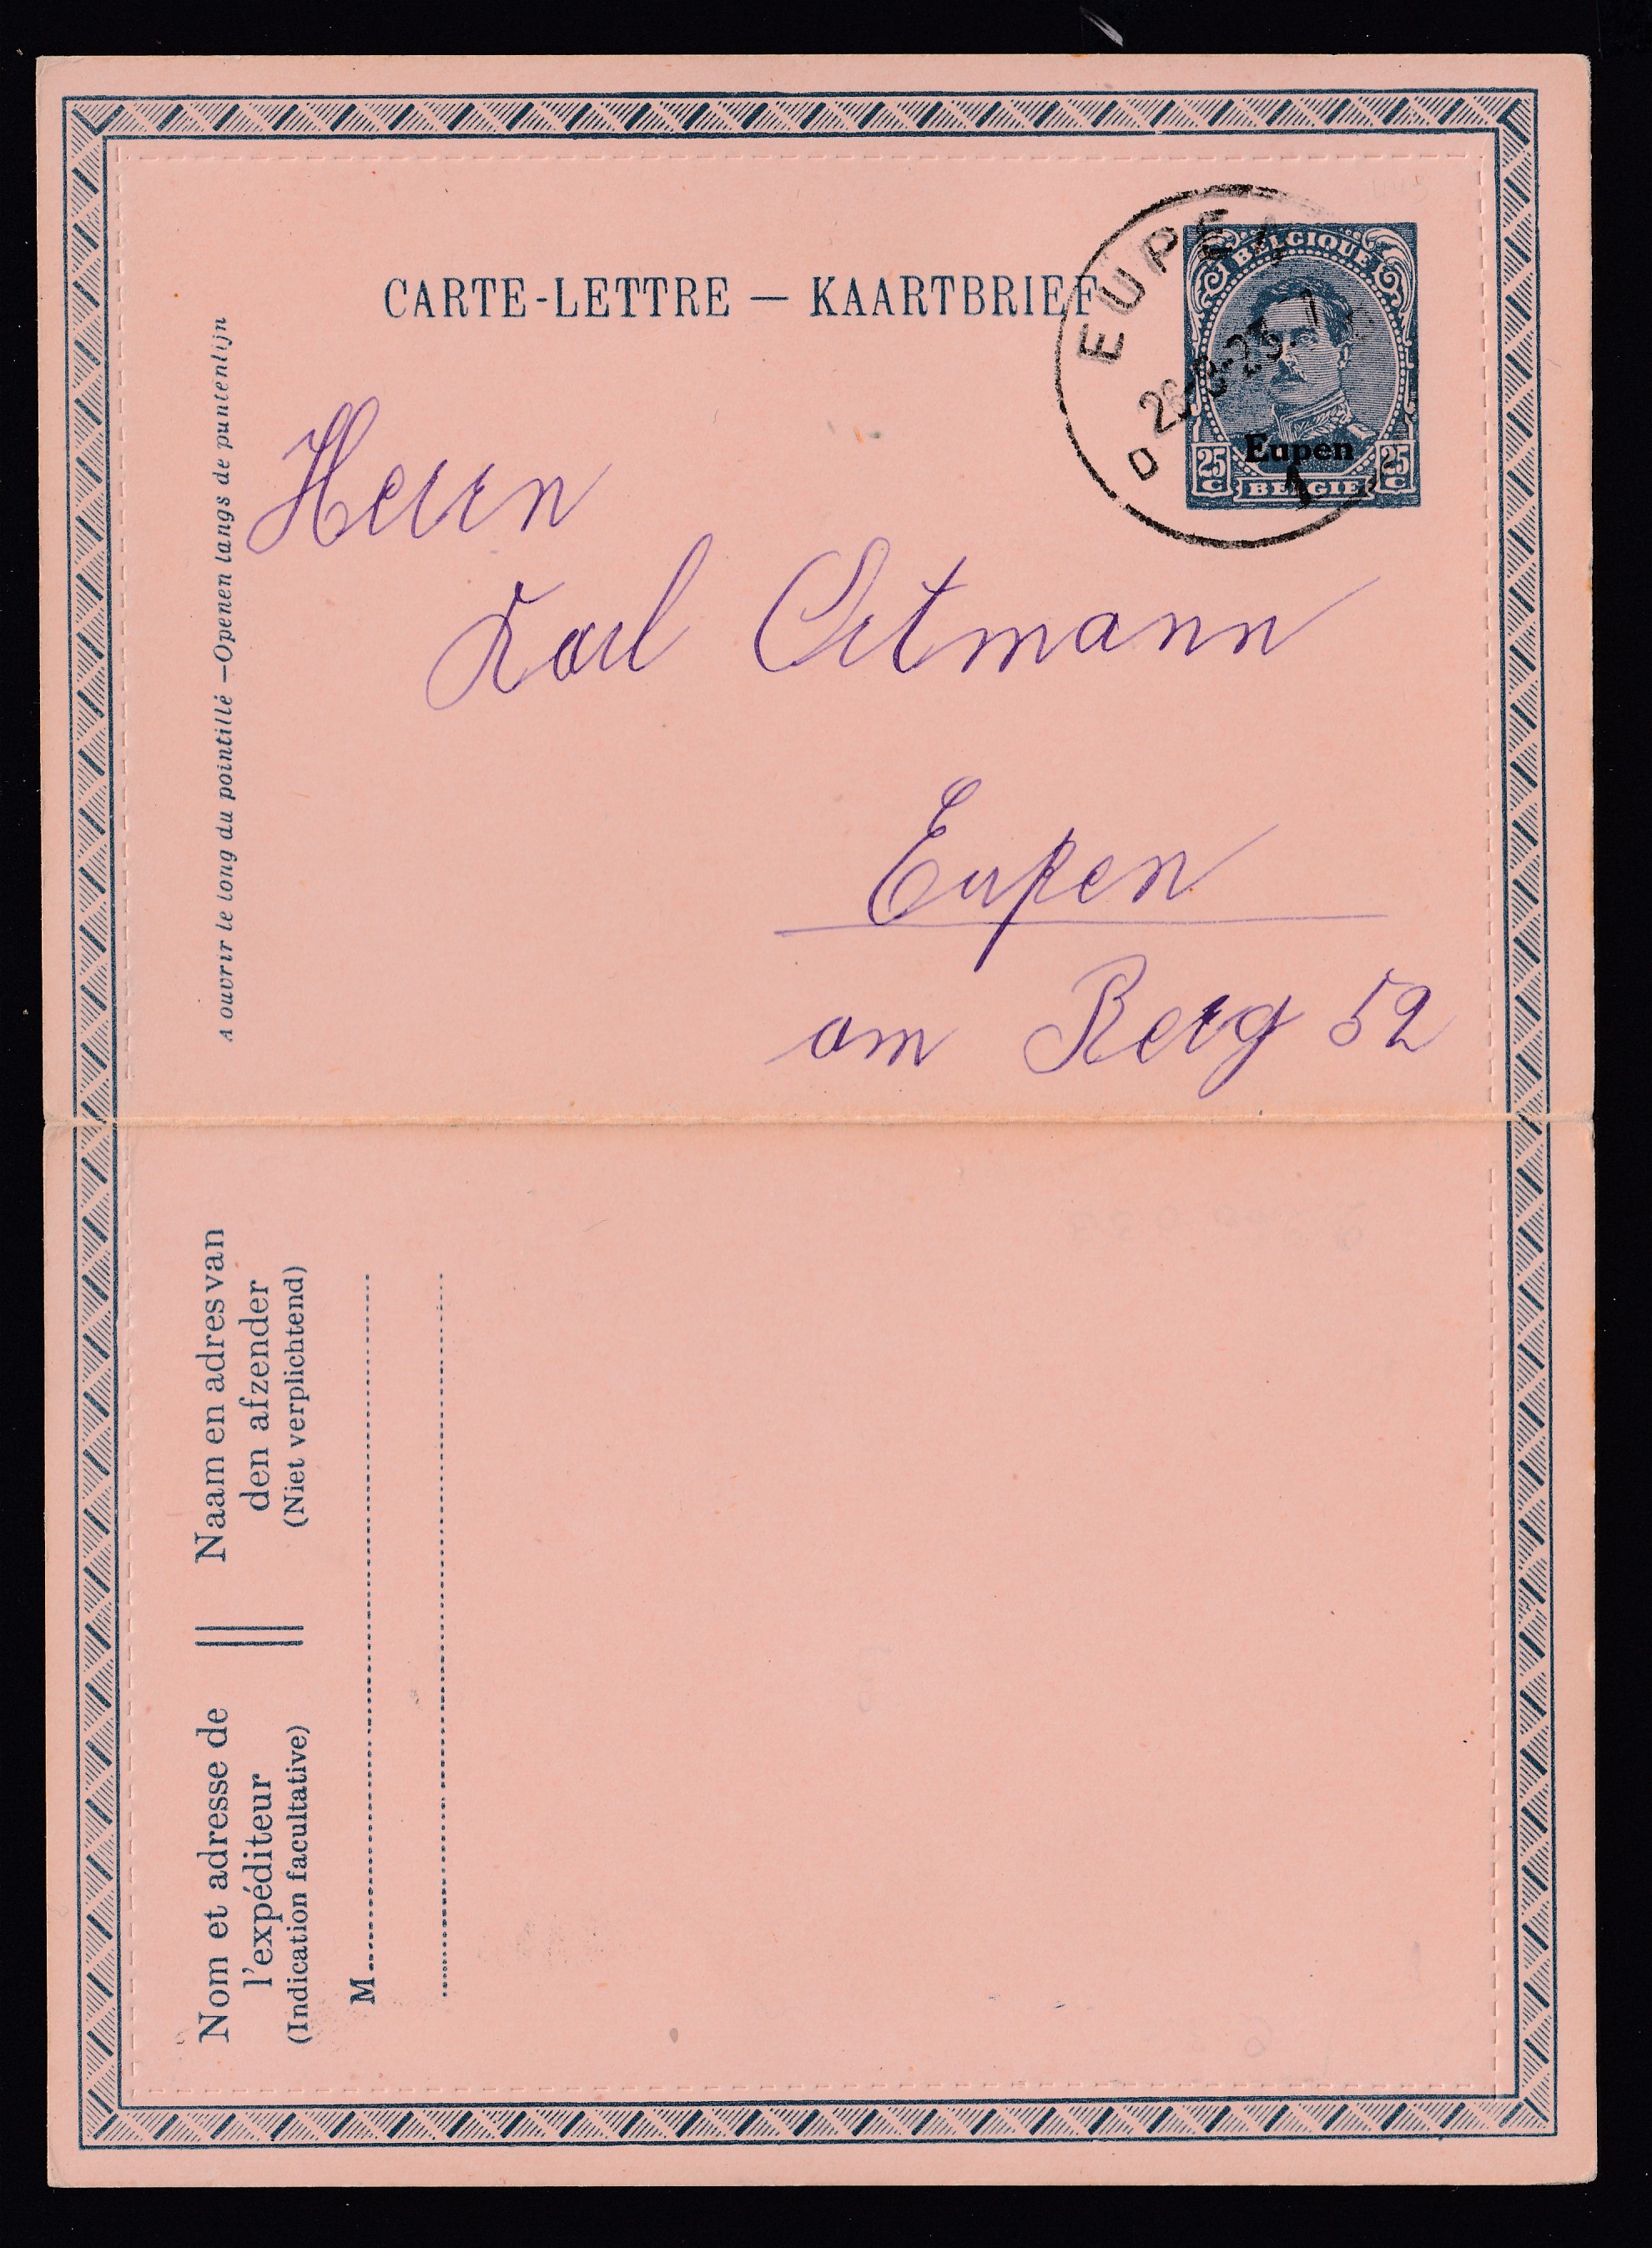 CARTE-LETTRE — KAARTBRIEF
BELGIQUE
Eupen
25 C
25 C
BELGIË
EUPEN
1
D
A ouvrir le long du pointillé — Openen langs de puntenlijn
Herrn
Karl Ortmann
Eupen
am Berg 52
Nom et adresse de
l'expéditeur
(Indication facultative)
Naam en adres van
den afzender
(Niet verplichtend)
M